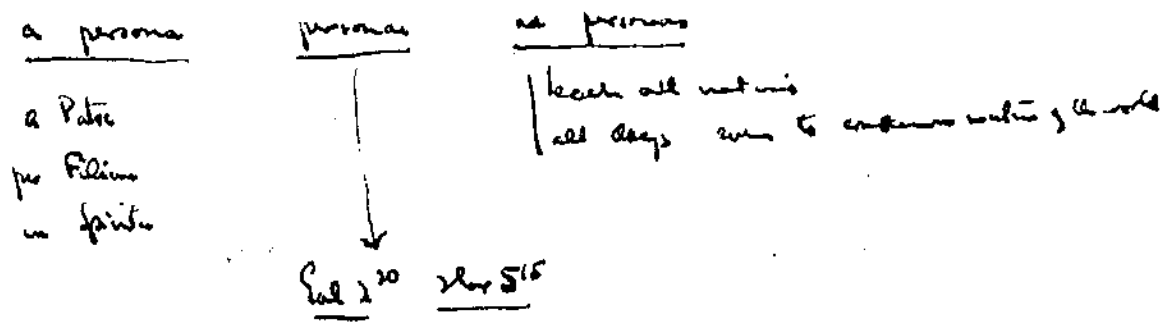 a persona personae ad personas
a Patre
per Filium
in Spiritu
teach all nations
all days even to consummation of the world
Gal 2²⁰ 2 Cor 5¹⁵